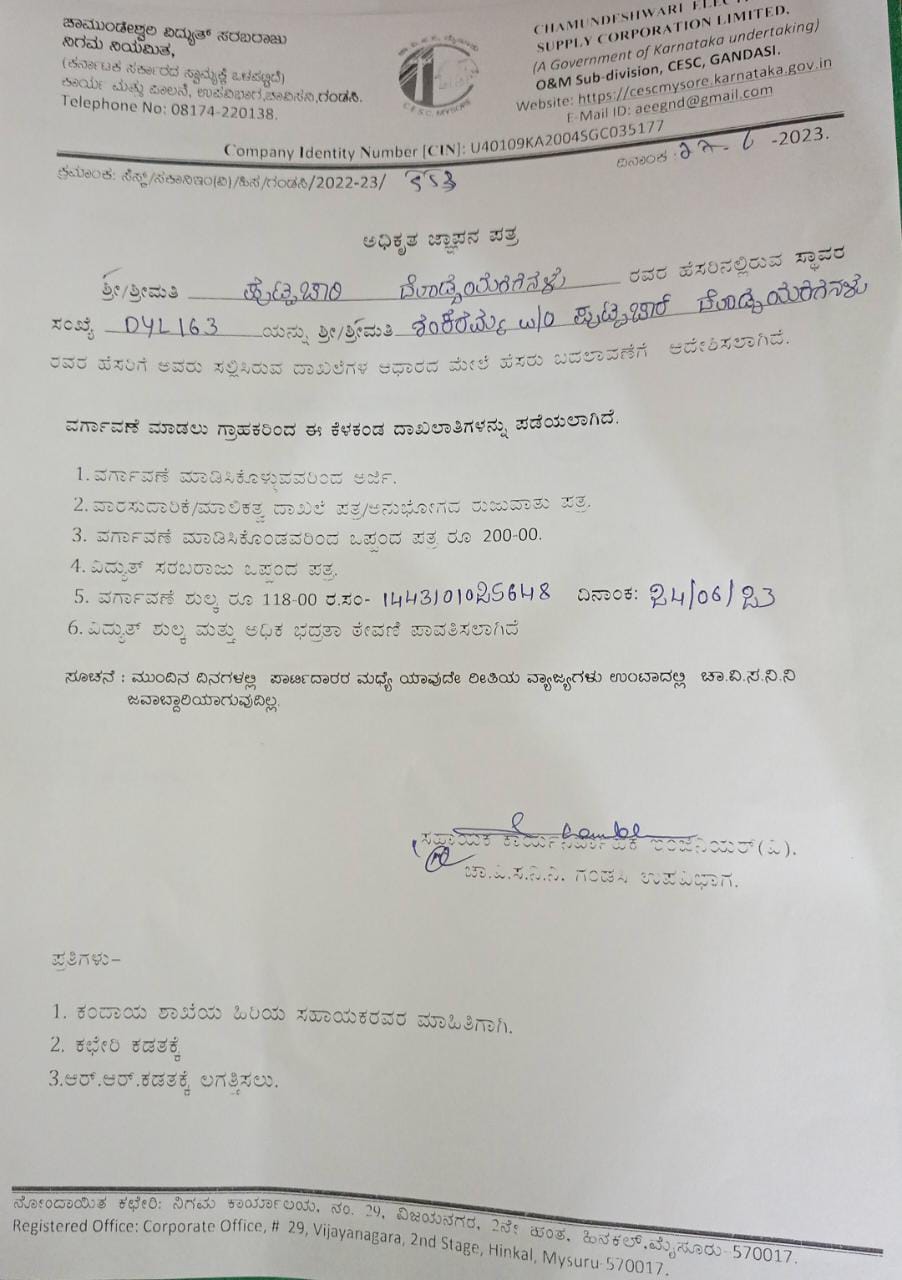 ಚಾಮುಂಡೇಶ್ವರಿ ವಿದ್ಯುತ್ ಸರಬರಾಜು
ನಿಗಮ ನಿಯಮಿತ,
(ಕರ್ನಾಟಕ ಸರ್ಕಾರದ ಸ್ವಾಮ್ಯಕ್ಕೆ ಒಳಪಟ್ಟಿದೆ)
ಕಾರ್ಯ ಮತ್ತು ಪಾಲನೆ, ಉಪವಿಭಾಗ,ಚಾವಿಸನಿ,ಗಂಡಸಿ.
Telephone No: 08174-220138.
C.E.S.C. MYSORE
CHAMUNDESHWARI
SUPPLY CORPORATION LIMITED.
(A Government of Karnataka undertaking)
O&M Sub-division, CESC, GANDASI.
Website: https://cescmysore.karnataka.gov.in
E-Mail ID: aeegnd@gmail.com
Company Identity Number [CIN]: U40109KA2004SGC035177
ಕ್ರಮಾಂಕ: ಸೆಸ್ಕ್/ಸಕಾನಿಇಂ(ವಿ)/ಹಿಸ/ಗಂಡಸಿ/2022-23/
ದಿನಾಂಕ : -2023.
ಅಧಿಕೃತ ಜ್ಞಾಪನ ಪತ್ರ
ಶ್ರೀ/ಶ್ರೀಮತಿ ಪುಟ್ಟಚಾರಿ ರವರ ಹೆಸರಿನಲ್ಲಿರುವ ಸ್ಥಾವರ
ಸಂಖ್ಯೆ DYL163 ಯನ್ನು ಶ್ರೀ/ಶ್ರೀಮತಿ ಶಂಕರಮ್ಮ W/O ಪುಟ್ಟಚಾರಿ
ರವರ ಹೆಸರಿಗೆ ಅವರು ಸಲ್ಲಿಸಿರುವ ದಾಖಲೆಗಳ ಆಧಾರದ ಮೇಲೆ ಹೆಸರು ಬದಲಾವಣೆಗೆ ಆದೇಶಿಸಲಾಗಿದೆ.
ವರ್ಗಾವಣೆ ಮಾಡಲು ಗ್ರಾಹಕರಿಂದ ಈ ಕೆಳಕಂಡ ದಾಖಲಾತಿಗಳನ್ನು ಪಡೆಯಲಾಗಿದೆ.
1. ವರ್ಗಾವಣೆ ಮಾಡಿಸಿಕೊಳ್ಳುವವರಿಂದ ಅರ್ಜಿ.
2. ವಾರಸುದಾರಿಕೆ/ಮಾಲಿಕತ್ವ ದಾಖಲೆ ಪತ್ರ/ಅನುಭೋಗದ ರುಜುವಾತು ಪತ್ರ.
3. ವರ್ಗಾವಣೆ ಮಾಡಿಸಿಕೊಂಡವರಿಂದ ಒಪ್ಪಂದ ಪತ್ರ ರೂ 200-00.
4. ವಿದ್ಯುತ್ ಸರಬರಾಜು ಒಪ್ಪಂದ ಪತ್ರ.
5. ವರ್ಗಾವಣೆ ಶುಲ್ಕ ರೂ 118-00 ರ.ಸಂ- 1443101025648 ದಿನಾಂಕ: 24/06/23
6. ವಿದ್ಯುತ್ ಶುಲ್ಕ ಮತ್ತು ಅಧಿಕ ಭದ್ರತಾ ಠೇವಣಿ ಪಾವತಿಸಲಾಗಿದೆ
ಸೂಚನೆ : ಮುಂದಿನ ದಿನಗಳಲ್ಲಿ ಪಾರ್ಟಿದಾರರ ಮಧ್ಯೆ ಯಾವುದೇ ರೀತಿಯ ವ್ಯಾಜ್ಯಗಳು ಉಂಟಾದಲ್ಲಿ ಚಾ.ವಿ.ಸ.ನಿ.ನಿ
ಜವಾಬ್ದಾರಿಯಾಗುವುದಿಲ್ಲ.
ಸಹಾಯಕ ಕಾರ್ಯನಿರ್ವಾಹಕ ಇಂಜಿನಿಯರ್(ವಿ).
ಚಾ.ವಿ.ಸ.ನಿ.ನಿ. ಗಂಡಸಿ ಉಪವಿಭಾಗ.
ಪ್ರತಿಗಳು-
1. ಕಂದಾಯ ಶಾಖೆಯ ಹಿರಿಯ ಸಹಾಯಕರವರ ಮಾಹಿತಿಗಾಗಿ.
2. ಕಛೇರಿ ಕಡತಕ್ಕೆ
3.ಆರ್.ಆರ್.ಕಡತಕ್ಕೆ ಲಗತ್ತಿಸಲು.
ನೋಂದಾಯಿತ ಕಛೇರಿ: ನಿಗಮ ಕಾರ್ಯಾಲಯ, ನಂ. 29, ವಿಜಯನಗರ, 2ನೇ ಹಂತ, ಹಿನಕಲ್,ಮೈಸೂರು-570017.
Registered Office: Corporate Office, # 29, Vijayanagara, 2nd Stage, Hinkal, Mysuru-570017.